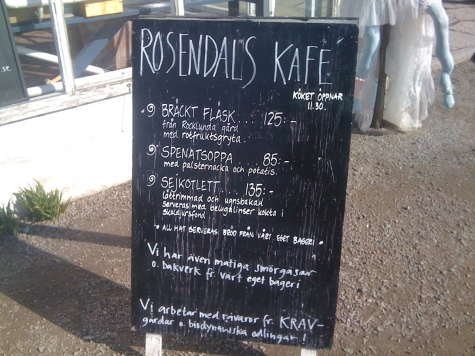 ROSENDALS KAFE
KÖKET ÖPPNAR
11.30.
BRÄCKT FLÄSK.... 125:-
från Rocklunda gård
med rotfruktsgryta.
SPENATSOPPA... 85:-
med palsternacka och potatis.
SEJKOTLETT.... 135:-
lättrimmad och ugnsbakad
serveras med belugalinser kokta i
skaldjursfond.
• ALL MAT SERVERAS BRÖD FRÅN VÅRT EGET BAGERI •
Vi har även matiga smörgåsar
o. bakverk fr. vårt eget bageri
Vi arbetar med råvaror fr. KRAV-
gårdar o. biodynamiska odlingar!